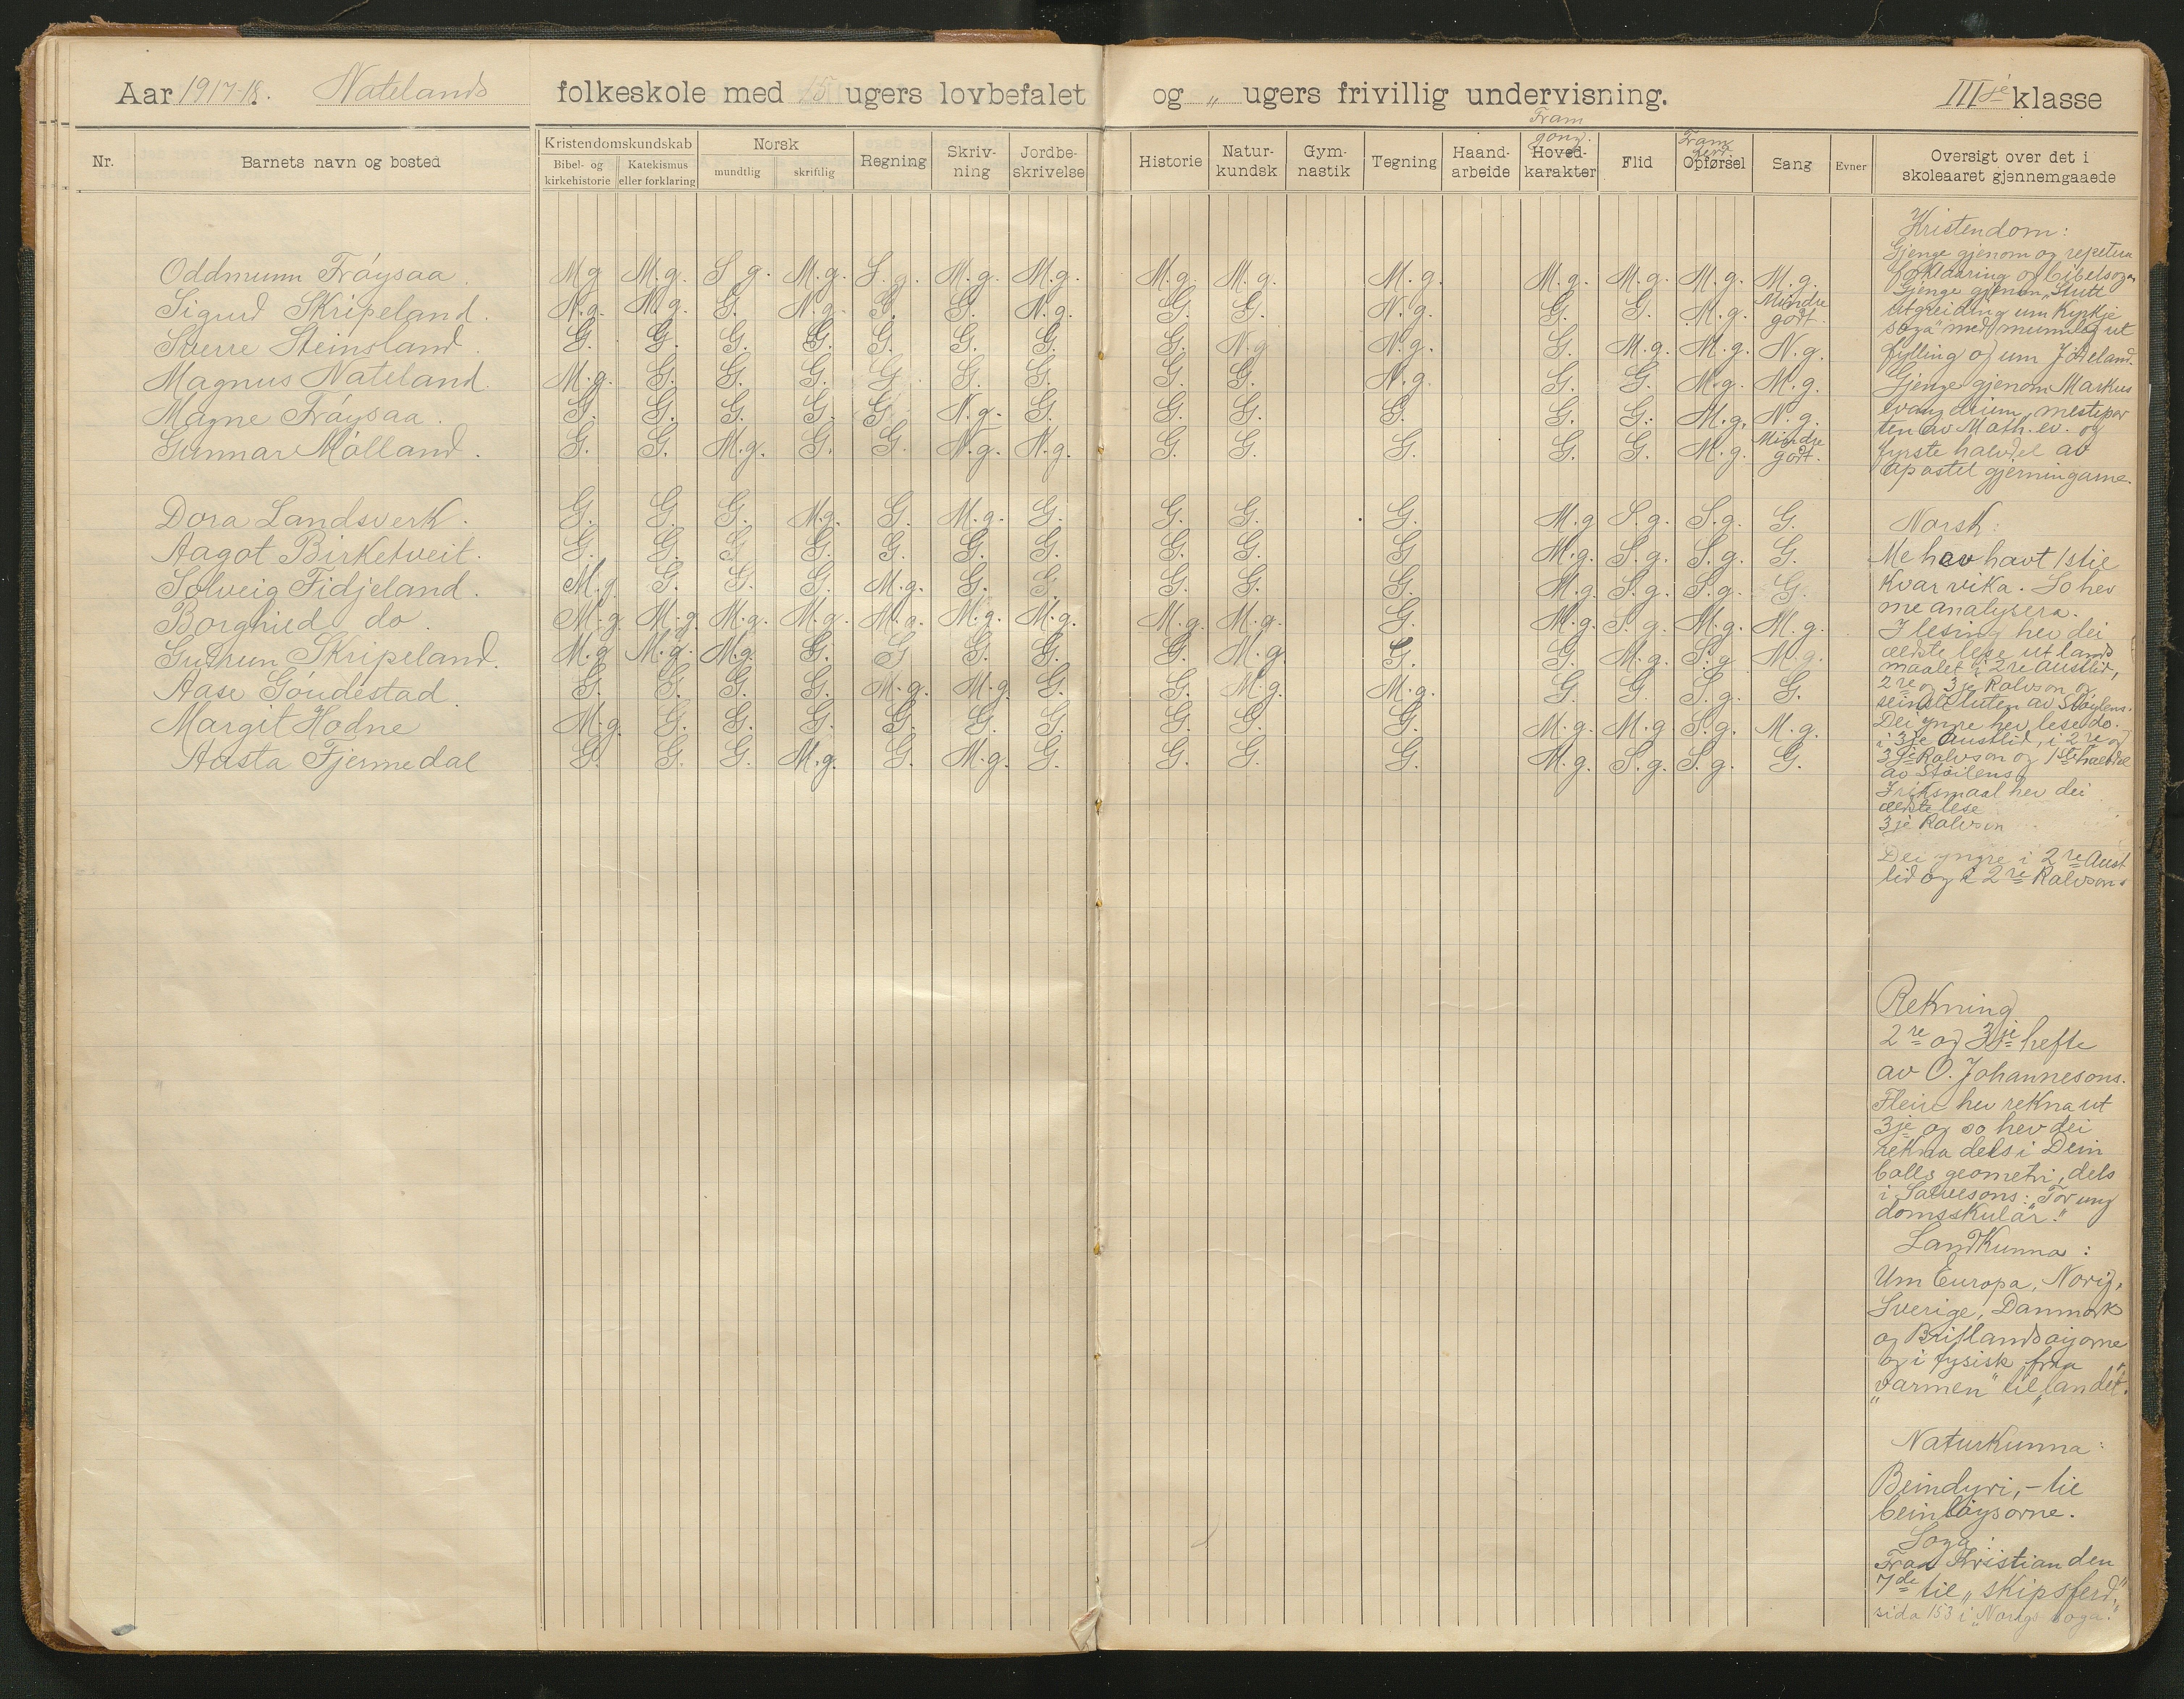 Aar 1917-18. Natelands folkeskole med 15 ugers lovbefalet og „ ugers frivillig undervisning. III je klasse
Nr. Barnets navn og bosted Kristendomskundskab Norsk Regning Skriv-ning Jordbe-skrivelse Historie Natur-kundsk Gym-nastik Tegning Haand-arbeide Hoved-karakter Flid Opførsel Sang Evner Oversigt over det i skoleaaret gjennemgaaede
Bibel- og kirkehistorie Katekismus eller forklaring mundtlig skriftlig Fram gong. Fram ferd.
Oddmunn Frøysaa. M.g. M.g. S.g. M.g. S.g. M.g. M.g. M.g. M.g. M.g. M.g. M.g. M.g. M.g.
Sigurd Skripeland. N.g. N.g. G. N.g. G. G. N.g. G. G. N.g. G. G. M.g. Mindre godt.
Sverre Steinsland. G. G. G. G. G. G. G. G. N.g. N.g. G. M.g. M.g. N.g.
Magnus Nateland. M.g. G. G. G. G. G. G. G. G. N.g. G. G. M.g. M.g.
Magne Frøysaa. G. G. G. G. G. N.g. G. G. G. G. G. G. M.g. N.g.
Gunnar Mølland. G. G. M.g. G. G. N.g. N.g. G. G. G. G. G. M.g. Mindre godt.
Dora Landsverk. G. G. G. M.g. G. M.g. G. G. G. G. M.g. S.g. S.g. G.
Aagot Birketveit. G. G. G. G. G. G. G. G. G. G. M.g. S.g. S.g. G.
Solveig Fidjeland. M.g. G. G. G. M.g. G. G. G. G. G. M.g. S.g. S.g. G.
Borghild do. M.g. M.g. M.g. M.g. M.g. M.g. M.g. M.g. M.g. G. M.g. S.g. M.g. M.g.
Gudrun Skripeland. M.g. M.g. M.g. G. G. G. G. G. M.g. G. G. M.g. S.g. M.g.
Aase Gøudestad. G. G. G. G. M.g. M.g. G. G. M.g. M.g. G. G. S.g. G.
Margit Hodne M.g. G. G. G. G. G. G. G. G. G. M.g. M.g. S.g. M.g.
Aasta Fjermedal G. G. G. M.g. G. M.g. G. G. G. G. M.g. S.g. S.g. G.
Kristendom:
Gjenge gjenom og repetera
forklaaring og bibelsoga
Gjenge gjenom „Stutt
utgreiding um Kyrkje
soga" med munnleg ut
fylling og um Jødeland.
Gjenge gjenom Markus
evangelium, mesteper
ten av Math. ev. og
fyrste halvdel av
apostel gjerningarne.
Norsk:
Me hev havt 1 stil
kvar vika. So hev
me analysera.
I lesing hev dei
eldste lese ut lands
maalet i 2re Austlid,
2re og 3je Rolvson og
seinste luten av Støylens.
Dei yngre hev lese do.
i 3je Austlid, i 2re og
3je Rolvson og 1ste halvdel
av Støilens
I riksmaal hev dei
eldste lese
3je Rolvson
Dei yngre i 2re Aust
lid og i 2re Rolvsons
Rekning
2re og 3je hefte
av O. Johannesons.
Fleire hev rekna ut
3je og so hev dei
rekna dels i Dein
bolls geometri, dels
i Salvesons: For ung
domsskular."
Landkunna:
Um Europa, Norig,
Sverige, Danmork
og Britlandsøyorne
og i fysisk fraa
„varmen" til „landet".
Naturkunna:
Beindyri, – til
beinløysorne.
Soga:
Fraa Kristian den
7de til „skipsferd",
sida 153 i „Norigs soga."